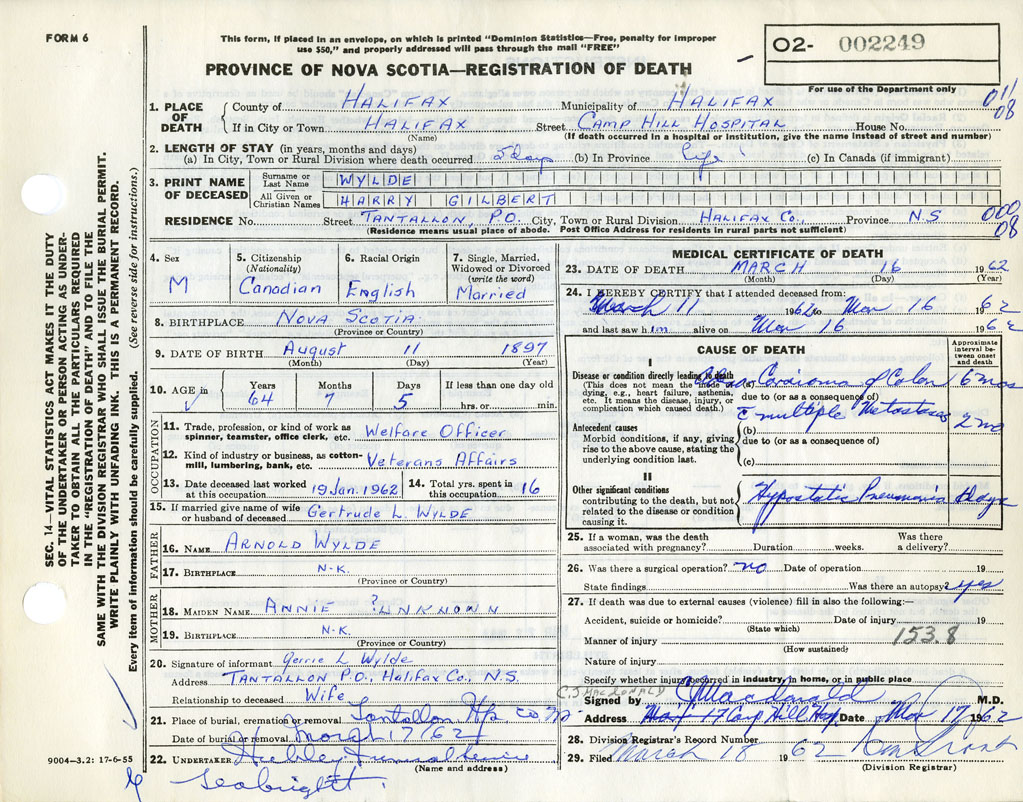 FORM 6
This form, if placed in an envelope, on which is printed "Dominion Statistics—Free, penalty for improper
use $50," and properly addressed will pass through the mail "FREE"
PROVINCE OF NOVA SCOTIA—REGISTRATION OF DEATH
02- 002249
For use of the Department only
011
08
1. PLACE OF DEATH
County of HALIFAX Municipality of HALIFAX
If in City or Town HALIFAX Street CAMP HILL HOSPITAL House No.
(Name) (If death occurred in a hospital or institution, give the name instead of street and number)
2. LENGTH OF STAY (in years, months and days)
(a) In City, Town or Rural Division where death occurred 5 days (b) In Province life (c) In Canada (if immigrant)
3. PRINT NAME OF DECEASED
Surname or Last Name WYLDE
All Given or Christian Names HARRY GILBERT
RESIDENCE No. Street TANTALLON, P.O. City, Town or Rural Division HALIFAX Co., Province N.S
(Residence means usual place of abode. Post Office Address for residents in rural parts not sufficient)
000
08
4. Sex
M
5. Citizenship
(Nationality)
Canadian
6. Racial Origin
English
7. Single, Married,
Widowed or Divorced
(write the word)
Married
8. BIRTHPLACE NOVA SCOTIA
(Province or Country)
9. DATE OF BIRTH August 11 1897
(Month) (Day) (Year)
10. AGE in Years Months Days If less than one day old
64 7 5 hrs. or min.
OCCUPATION
11. Trade, profession, or kind of work as
spinner, teamster, office clerk, etc. Welfare Officer
12. Kind of industry or business, as cotton-
mill, lumbering, bank, etc. Veterans Affairs
13. Date deceased last worked
at this occupation 19 Jan. 1962
14. Total yrs. spent in
this occupation 16
15. If married give name of wife
or husband of deceased Gertrude L. WYLDE
FATHER
16. NAME ARNOLD WYLDE
17. BIRTHPLACE N-K.
(Province or Country)
MOTHER
18. MAIDEN NAME ANNIE ? UNKNOWN
19. BIRTHPLACE N-K.
(Province or Country)
20. Signature of informant Gerrie L Wylde
Address TANTALLON P.O., Halifax Co., N.S.
Relationship to deceased Wife
21. Place of burial, cremation or removal Tantallon Hfx co NS
Date of burial or removal March 17/62
22. UNDERTAKER Hubley Funeral Service
(Name and address)
Seabright.
9004—3.2: 17-6-55
MEDICAL CERTIFICATE OF DEATH
23. DATE OF DEATH MARCH 16 1962
(Month) (Day) (Year)
24. I HEREBY CERTIFY that I attended deceased from:
March 11 1962 to Mar 16 1962
and last saw him alive on Mar 16 1962
CAUSE OF DEATH
Approximate
interval be-
tween onset
and death
I
Disease or condition directly leading to death
(This does not mean the mode of
dying, e.g., heart failure, asthenia,
etc. It means the disease, injury, or
complication which caused death.)
(a) Carcinoma of Colon 6 mos
due to (or as a consequence of)
c multiple Metastases 2 mo
Antecedent causes
Morbid conditions, if any, giving
rise to the above cause, stating the
underlying condition last.
(b)
due to (or as a consequence of)
(c)
II
Other significant conditions
contributing to the death, but not
related to the disease or condition
causing it.
Hypostatic Pneumonia days
25. If a woman, was the death
associated with pregnancy? Duration weeks. Was there
a delivery?
26. Was there a surgical operation? no Date of operation 19
State findings Was there an autopsy? yes
27. If death was due to external causes (violence) fill in also the following:—
Accident, suicide or homicide? Date of injury 19
(State which)
Manner of injury 153.8
(How sustained)
Nature of injury
Specify whether injury occurred in industry, in home, or in public place
C.J MACDONALD
Signed by CJ Macdonald M.D.
Address Camp Hill Hosp Date Mar 17 1962
28. Division Registrar's Record Number
29. Filed March 18 1962
(Division Registrar)
SEC. 14—VITAL STATISTICS ACT MAKES IT THE DUTY
OF THE UNDERTAKER OR PERSON ACTING AS UNDER-
TAKER TO OBTAIN ALL THE PARTICULARS REQUIRED
IN THE "REGISTRATION OF DEATH" AND TO FILE THE
SAME WITH THE DIVISION REGISTRAR WHO SHALL ISSUE THE BURIAL PERMIT.
WRITE PLAINLY WITH UNFADING INK. THIS IS A PERMANENT RECORD.
Every item of information should be carefully supplied. (See reverse side for instructions.)